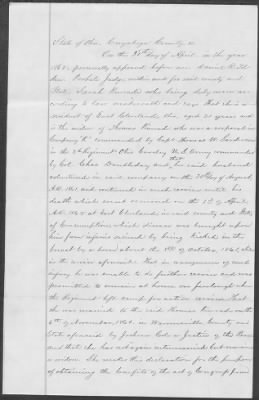 State of Ohio, Cuyahoga County, ss
On this 28th day of April in the year
1862, personally appeared before me Daniel R. Til
den Probate Judge within and for said county and
State Sarah who being duly sworn ac
cording to law doth and says That she is a
resident of East Cleveland Ohio, aged 21 years and
is the widow of Thomas who was a corporal in
company commanded by Capt Thomas W.
in the 2d Regiment Ohio Cavalry Vols. Army commanded
by Col. Chas Doubleday that her said husband
volunteered in said company on the 20th day of August
A.D. 1861, and continued in such service until his
death which event occurred on the 5th of April
A.D. 1862 at East Cleveland in said county and State
of Consumption which disease was brought upon
him from injuries received by being kicked in the
breast by a horse about the of October, 1861 while
in the service aforesaid. That in consequence of said
injury he was unable to do further service and was
permitted to remain at home on furlough when
the Regiment left camp for active service. That
she was married to the said Thomas on the
6th of November, 1860. in Warrensville County and
State aforesaid by Joshua a Justice of the Peace
and that she has not again intermarried but remains
a widow. She makes this declaration for the purpose
of obtaining the benefits of the act of Congress